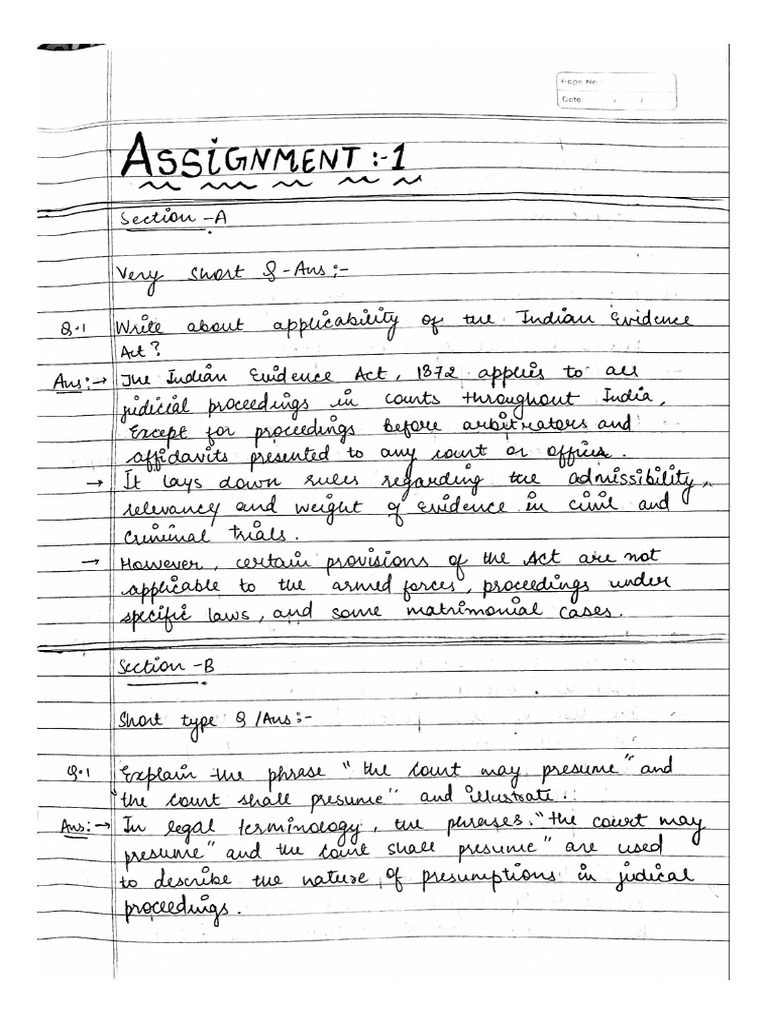 Page No.
Date / /
ASSIGNMENT :- 1
Section - A
Very Short Q - Ans :-
Q.1 Write about applicability of the Indian Evidence
Act?
Ans :→ The Indian Evidence Act, 1872 applies to all
judicial proceedings in courts throughout India,
Except for proceedings before arbitrators and
affidavits presented to any court or officer.
→ It lays down rules regarding the admissibility,
relevancy and weight of evidence in civil and
criminal trials.
→ However, certain provisions of the Act are not
applicable to the armed forces, proceedings under
specific laws, and some matrimonial cases.
Section - B
Short type Q /Ans :-
Q.1 Explain the phrase "the court may presume" and
"the court shall presume" and illustrate.
Ans :→ In legal terminology, the phrases. "the court may
presume" and the court shall presume" are used
to describe the nature of presumptions in judical
proceedings.